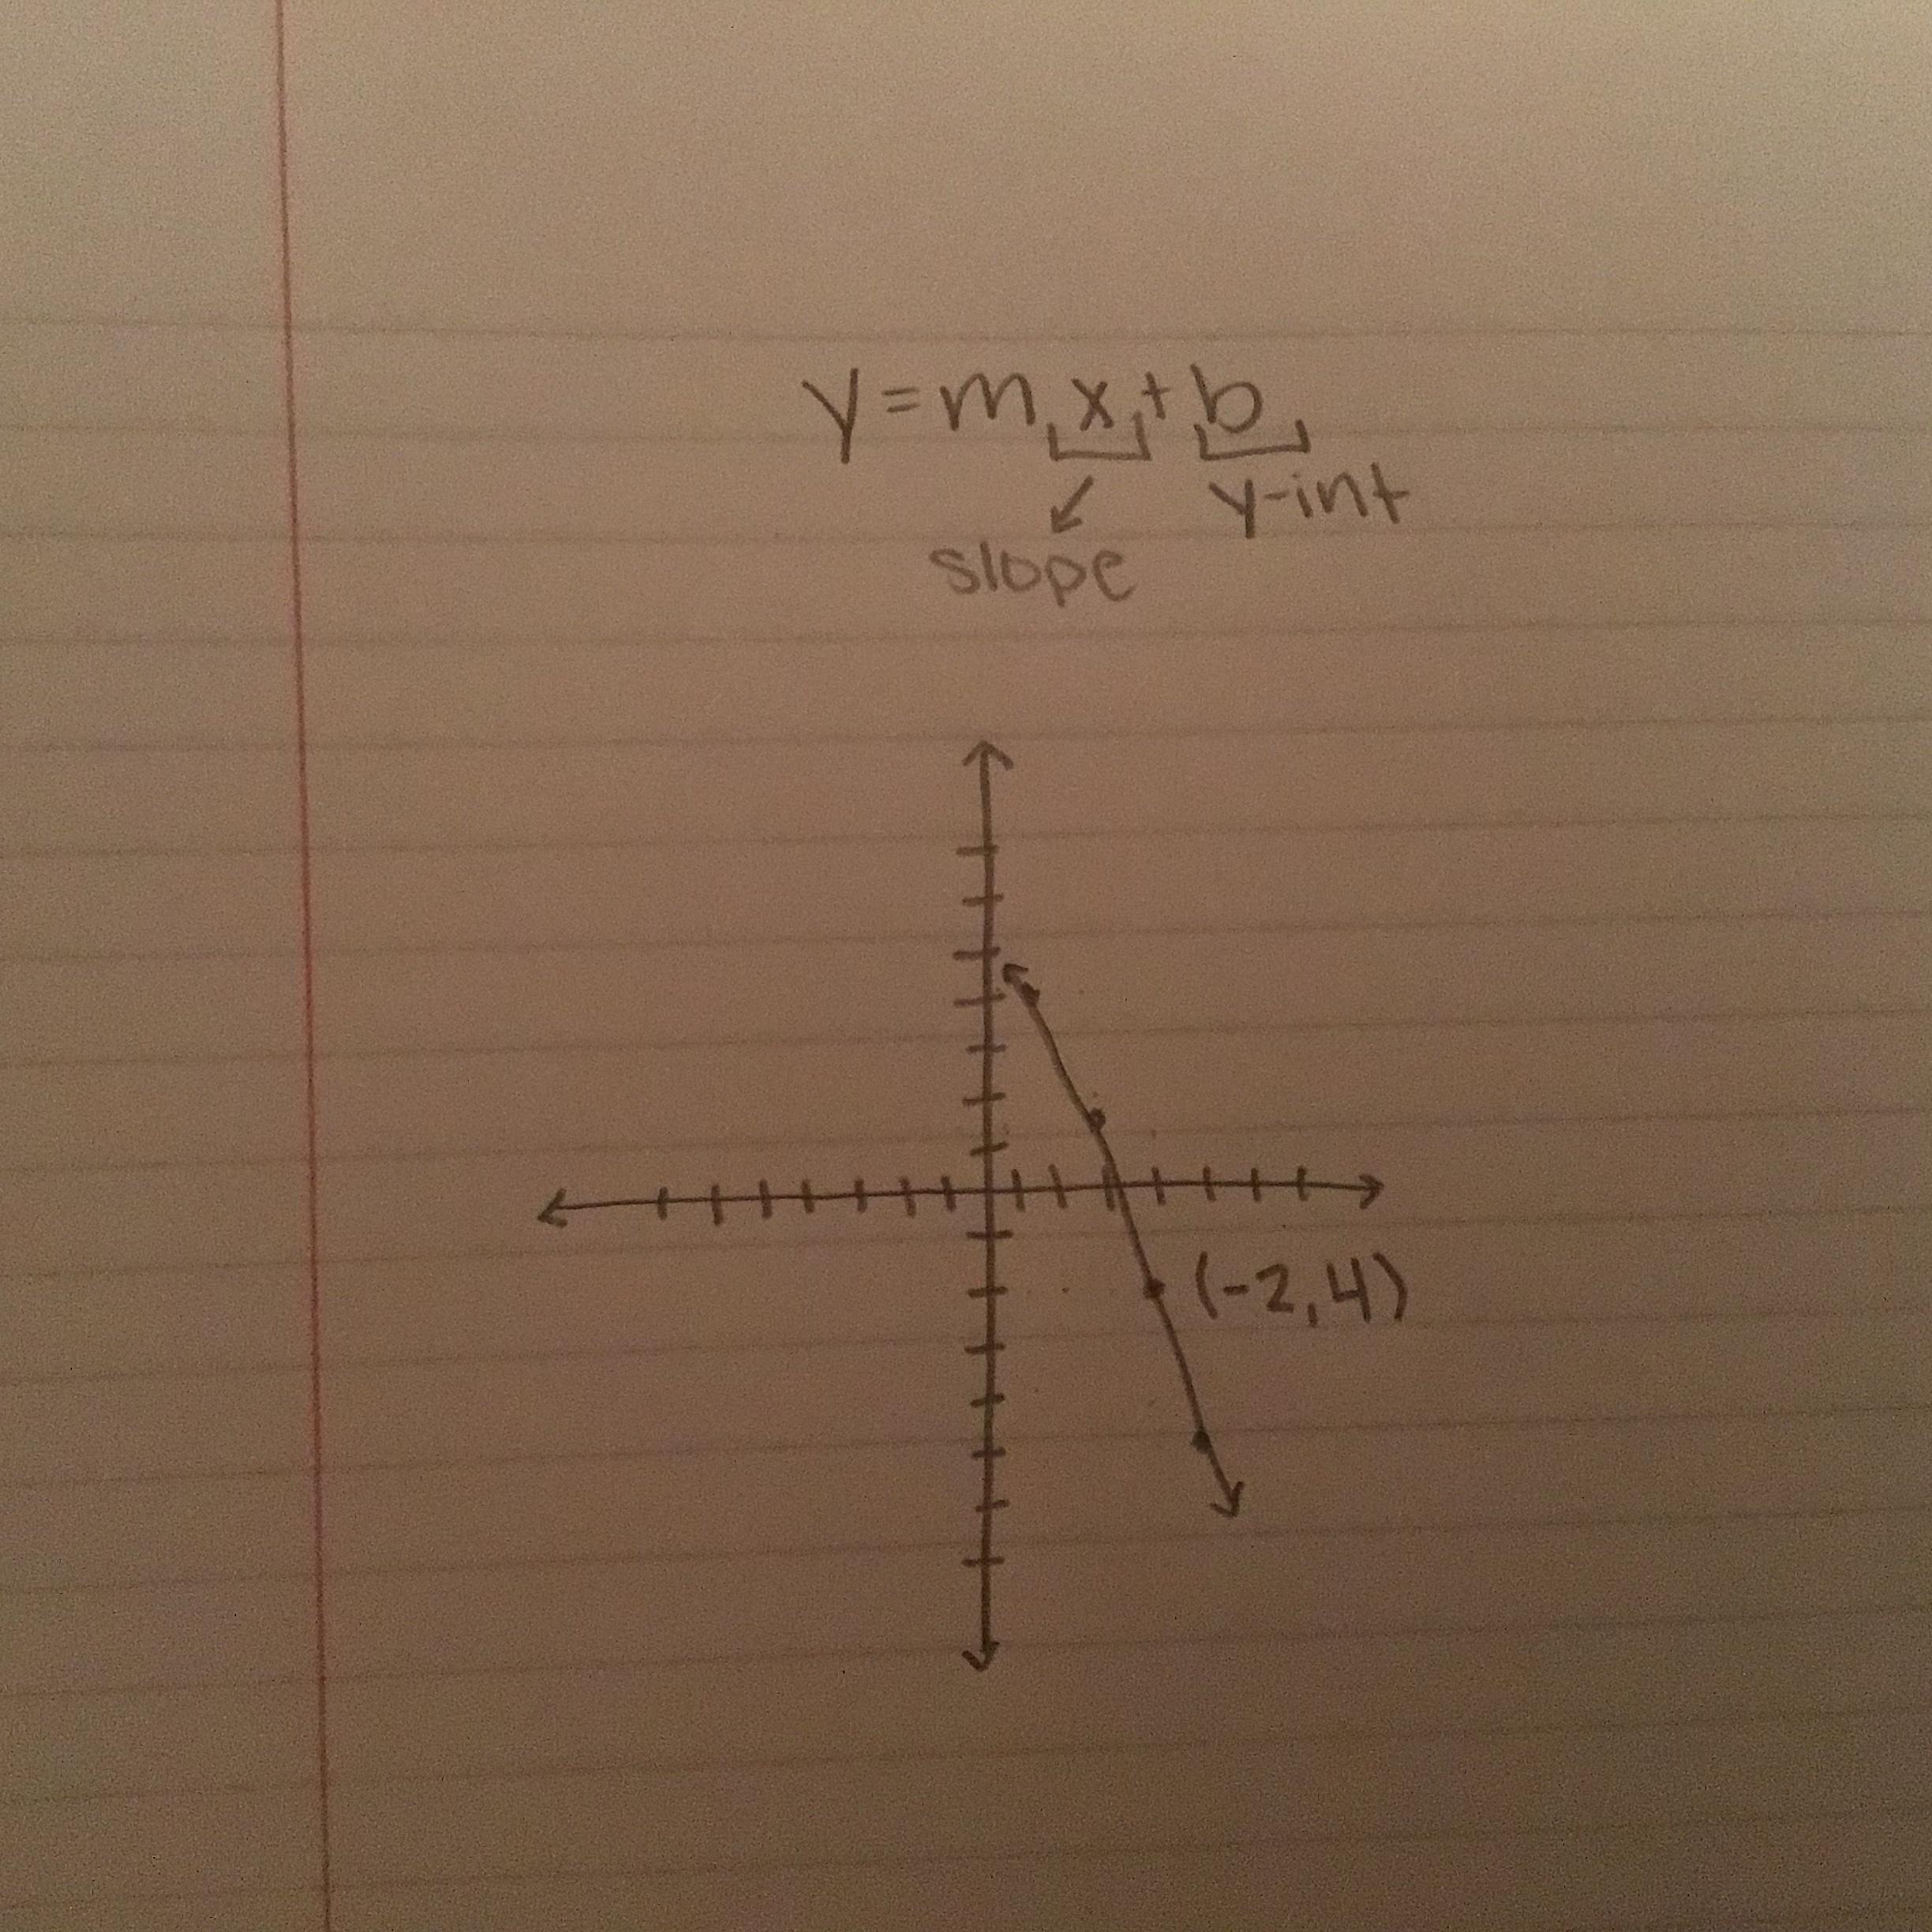 y = mx + b
y-int
slope
(-2, 4)